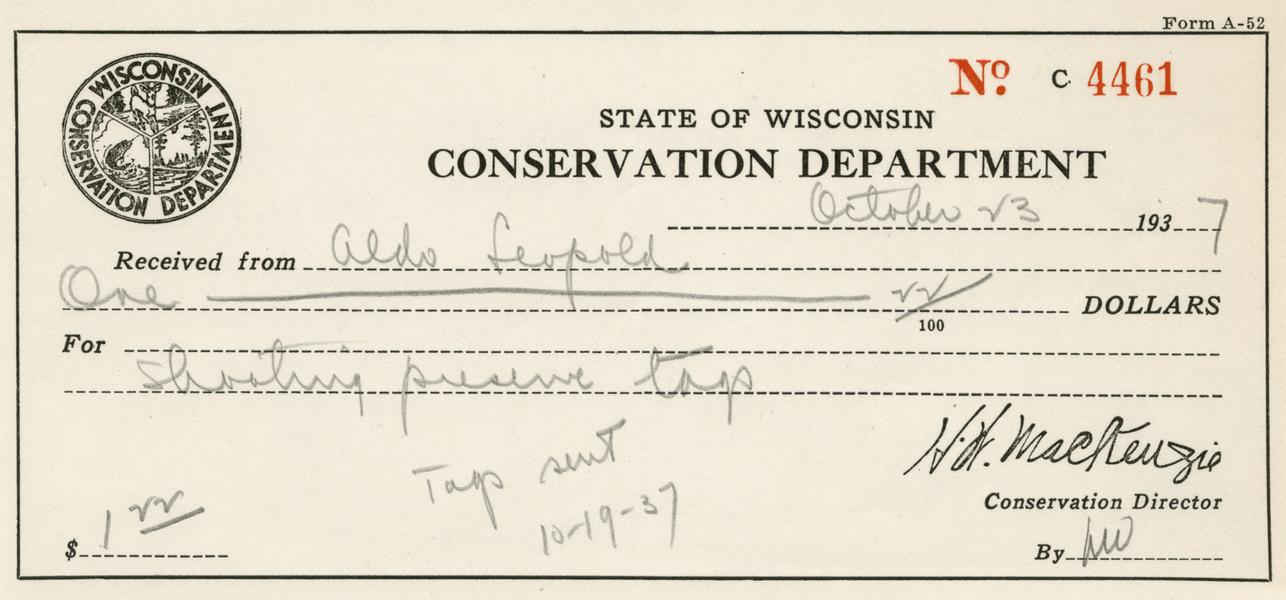 Form A-52
WISCONSIN CONSERVATION DEPARTMENT
No. C 4461
STATE OF WISCONSIN
CONSERVATION DEPARTMENT
October 23 1937
Received from Aldo Leopold
One 22/100 DOLLARS
For
shooting preserve tags
Tags sent
10-19-37
H.W. MacKenzie
Conservation Director
$ 1 22
By